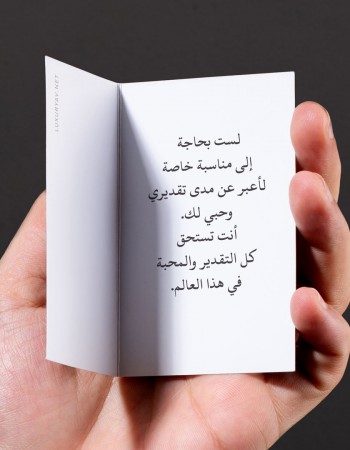 LUXURYBY.NET
لست بحاجة
إلى مناسبة خاصة
لأعبر عن مدى تقديري
وحبي لك.
أنت تستحق
كل التقدير والمحبة
في هذا العالم.